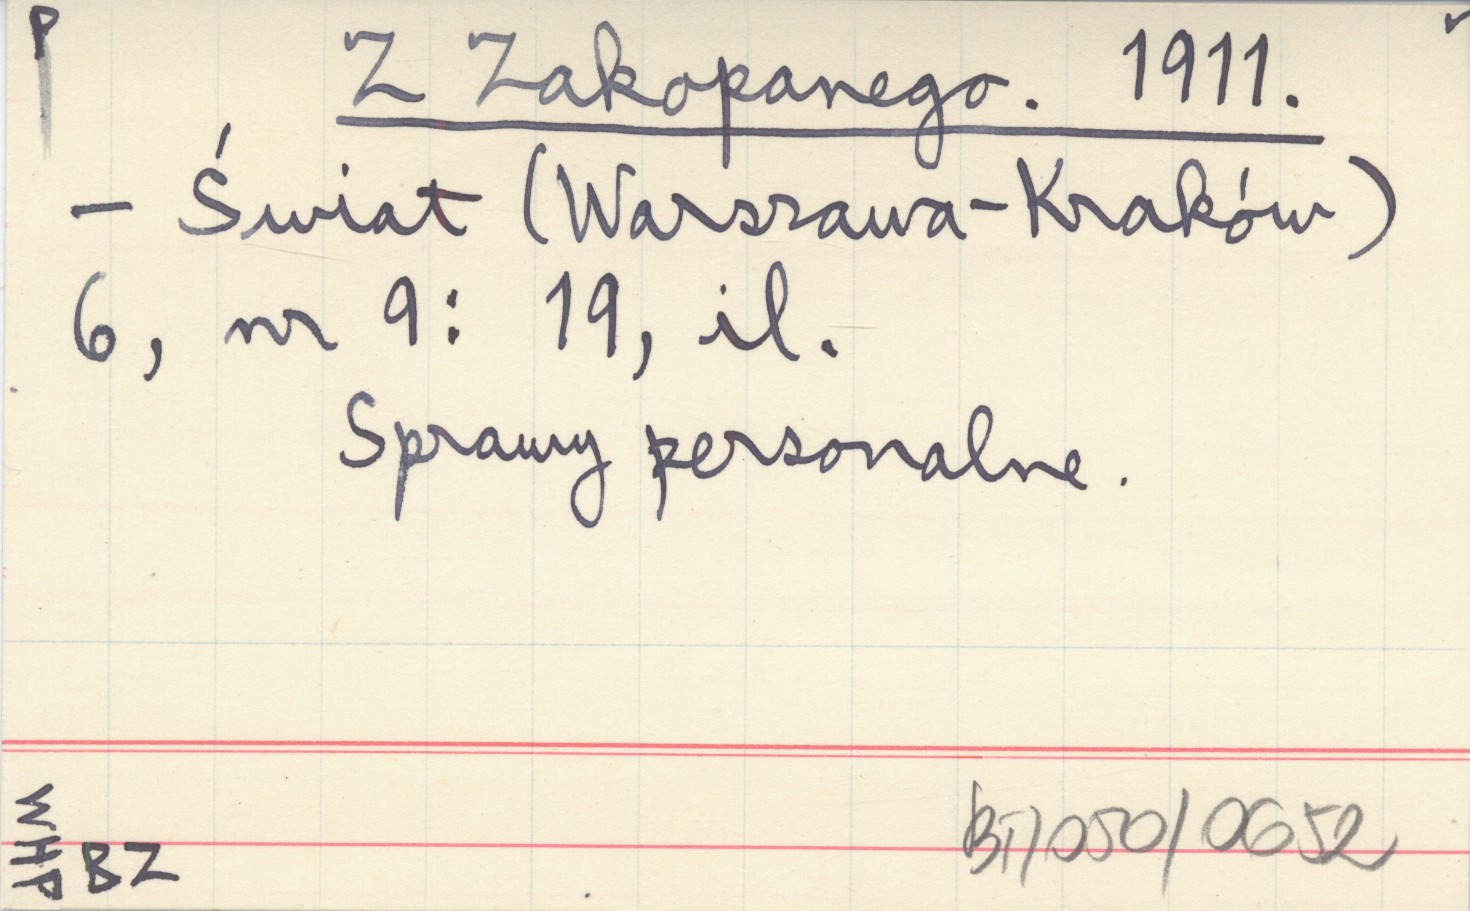 P
Z Zakopanego. 1911.
- Świat (Warszawa-Kraków)
6, nr 9: 19, il.
Sprawy personalne.
WHP
BZ
BT/050/0652